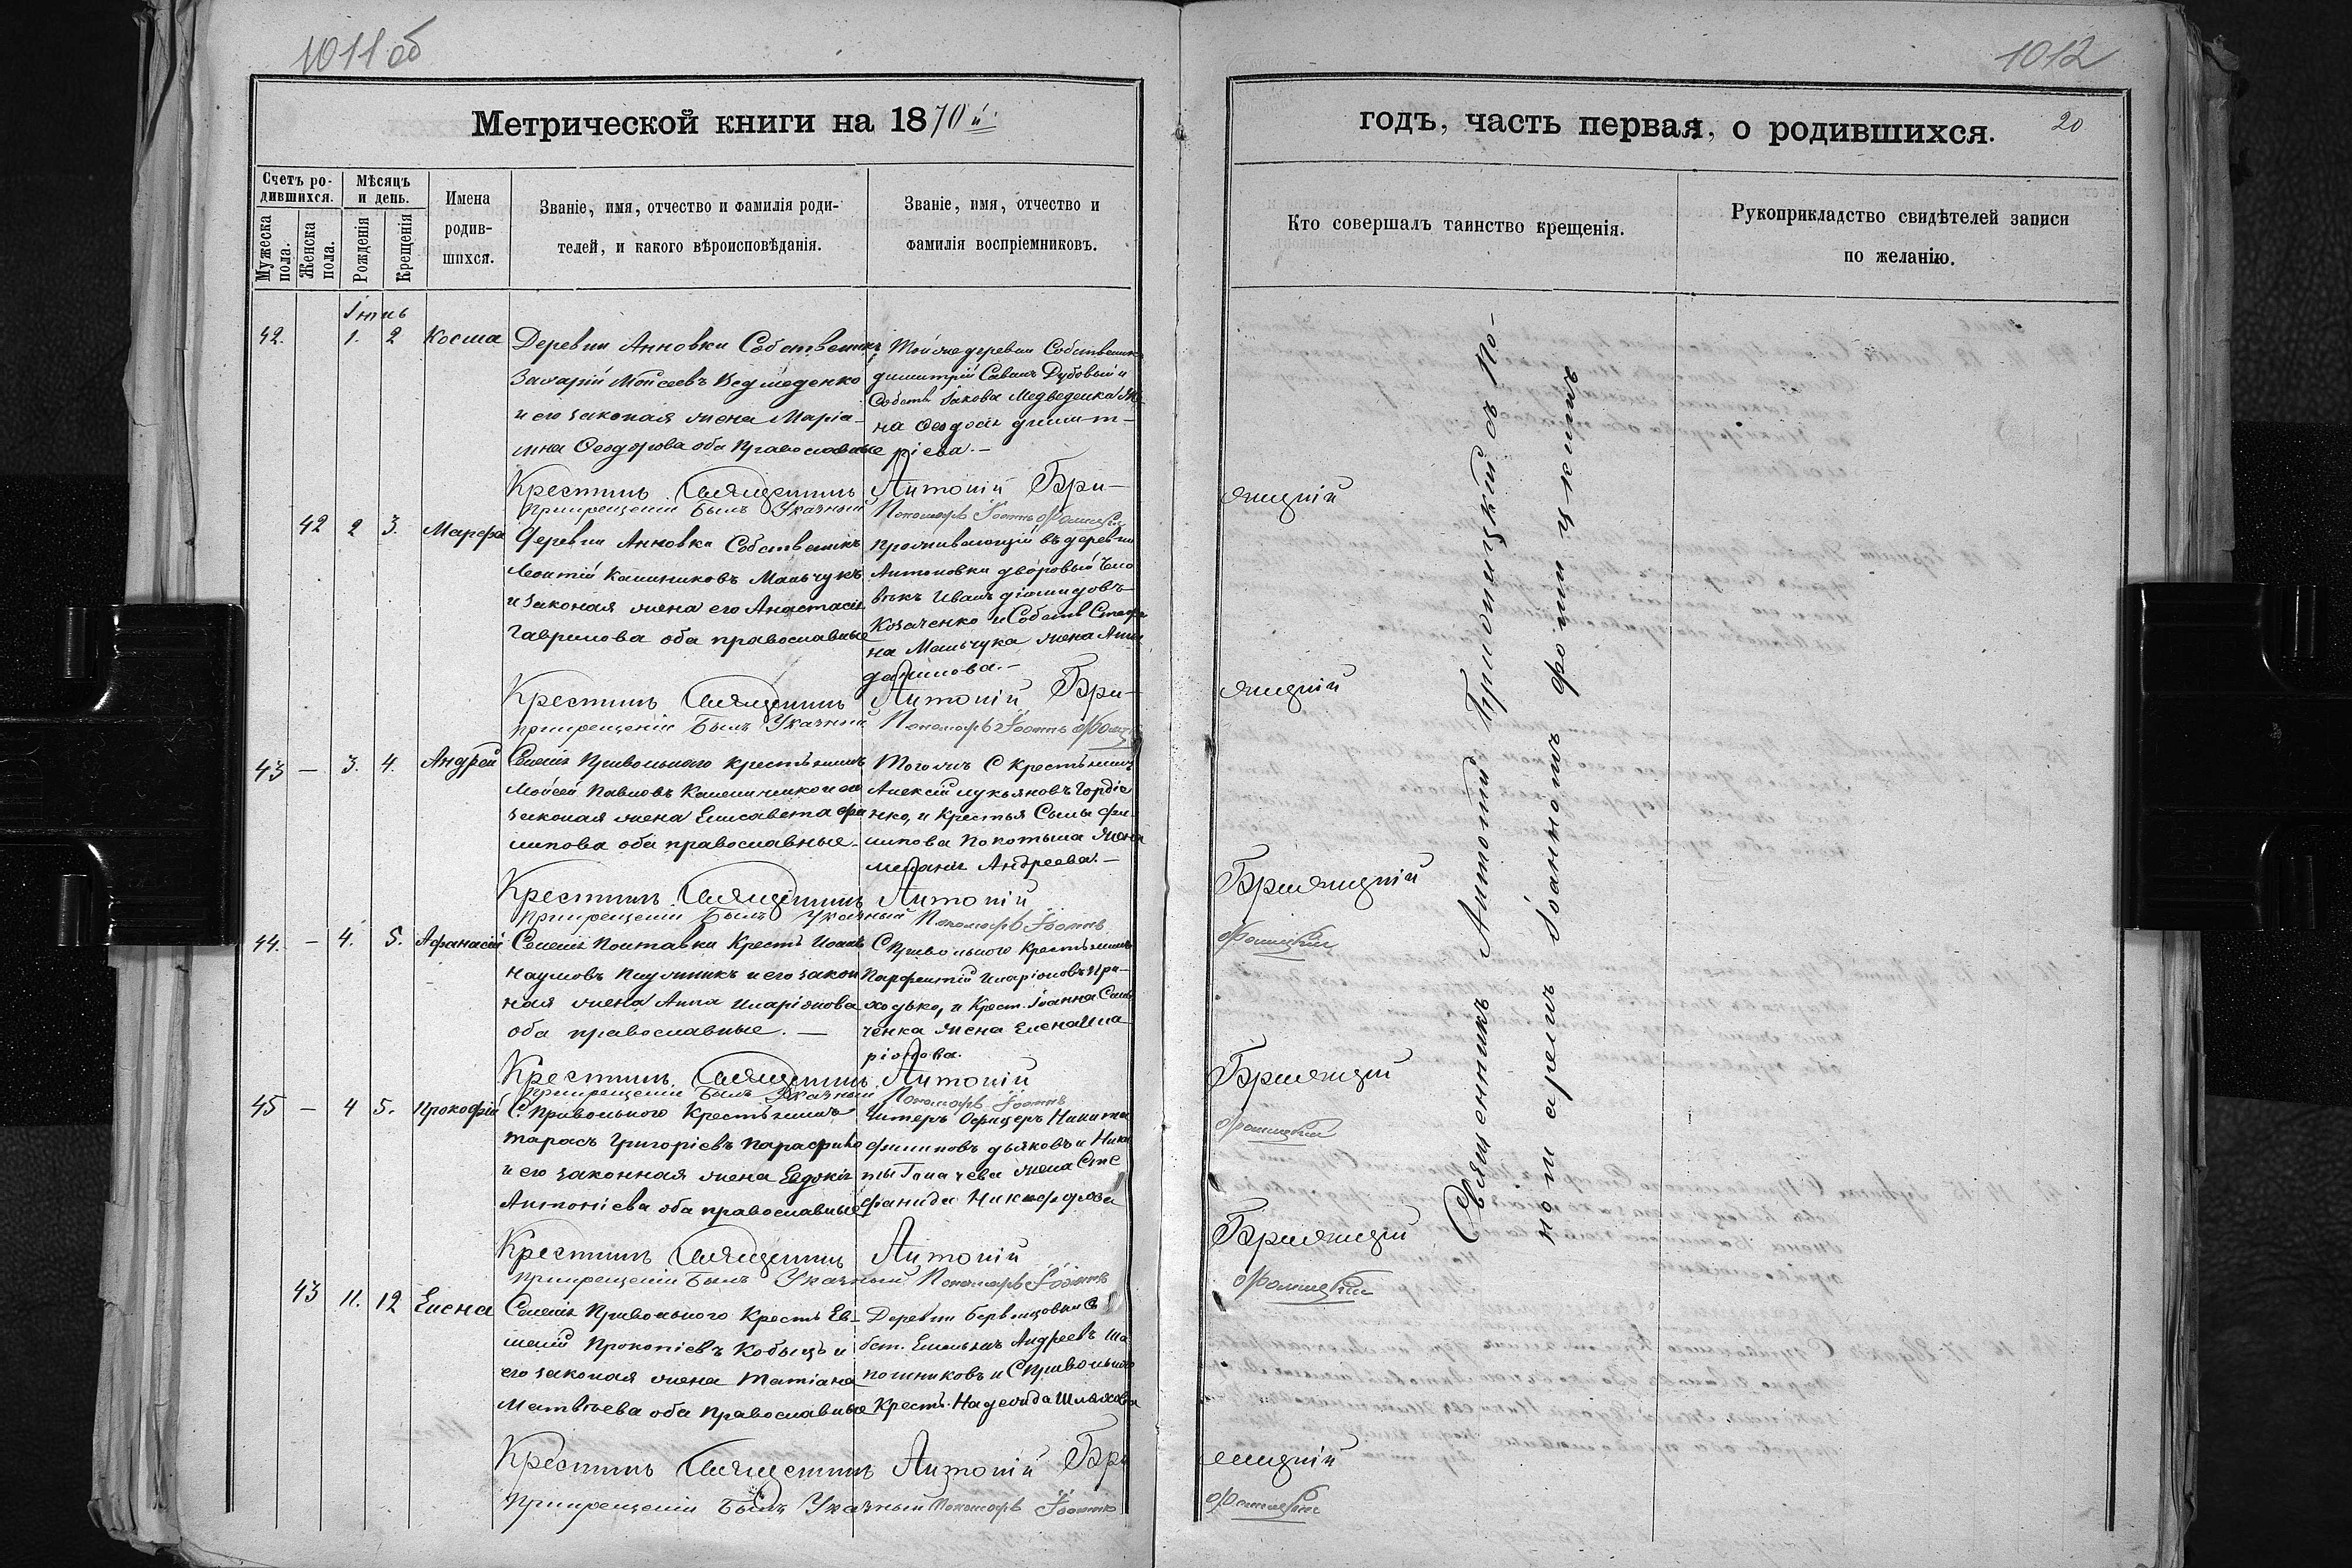 1011 об
Метрической книги на 1870 й
Счетъ ро-
дившихся.
Мужеска
пола.
Женска
пола.
Мѣсяцъ
и день.
Рожденія
Крещенія
Имена
родив-
шихся.
Званіе, имя, отчество и фамилія роди-
телей, и какого вѣроисповѣданія.
Званіе, имя, отчество и
фамилія воспріемниковъ.
42. 1. 2 Косма
Деревни Анновки Собственникъ
Захарій Моѵсеевъ Ведмеденко
и его законая жена Маріа-
мна Ѳеодорова оба Православные
Тойже деревни Собственикъ
Димитрій Саванъ Дубовый и
Собств Іакова Медведенка Же-
на Ѳеодосія Димит-
ріева.-
Крестилъ Священникъ Антоній Бри-
При крещеніи Былъ Указный Пономарь Іоаннъ Фотицкій
42 2 3. Марѳа
Деревни Анновки Собственикъ
Леонтій Калиниковъ Мальчукъ
и законая жена его Анастасія
Гаврилова оба православные
Проживающій въ деревни
Антоновки дворовый Чело
вѣкъ Иванъ Діомидовъ
Козаченко и Собств Стефа
на Мальчука жена Анна
Данилова.-
Крестилъ Священникъ Антоній Бри-
При крещеніи Былъ Указный Пономарь Іоаннъ
43 - 3. 4. Андрей
Селенія Привольного крестьянинъ
Мойсей Павловъ и его
законая жена Елисавета Фи
липова оба православные
Тогожъ С крестьянинъ
Алексій Лукьяновъ Гордіе
нко, и Крестья Силы Фи-
липова Покотыла Жена
Меланія Андреева.-
Крестилъ Священникъ Антоній
При крещеніи Былъ Указный Пономарь Іоаннъ
44. - 4. 5. Афанасій
Селенія Полтавки Крестъ Іоаннъ
Наумовъ и его закон
ная жена Анна Иларіонова
оба православные. -
С Привольного Крестьянинъ
Парфентій Иларіоновъ При-
ходько, и Крест. Іоанна
ченка Жена Елена Ила
ріонова.
Крестилъ Священникъ Антоній
При крещеніи Былъ Указный Пономарь Іоаннъ
45 - 4 5. Прокофій
С. Привольного Крестьянинъ
Тарасъ Григоріевъ
и его законная жена Евдокія
Антоніева оба православные
Унтеръ Офицеръ Никита
Филиповъ Дьяковъ и Ники
ты жена Сте
фанида Никифорова
Крестилъ Священникъ Антоній
При крещеніи Былъ Указный Пономарь Іоаннъ
43 11. 12 Елена
Селенія Привольного Крестъ Ев-
меній Прокопіевъ Кобыцъ и
его законая жена Татіана
Матвѣева оба Православные
Деревни Со
бст. Емельянъ Андреевъ Ша
пошниковъ и С Привольного
Крестъ. Надежда Шляхова
Крестилъ Священникъ Антоній Бри
При крещеніи Былъ Указный Пономарь Іоаннъ
1012
годъ, часть первая, о родившихся.
20
Кто совершалъ таинство крещенія.
Рукоприкладство свидѣтелей записи
по желанію.
Священникъ Антоній съ По-
номаремъ Іоанномъ Фотицкимъ